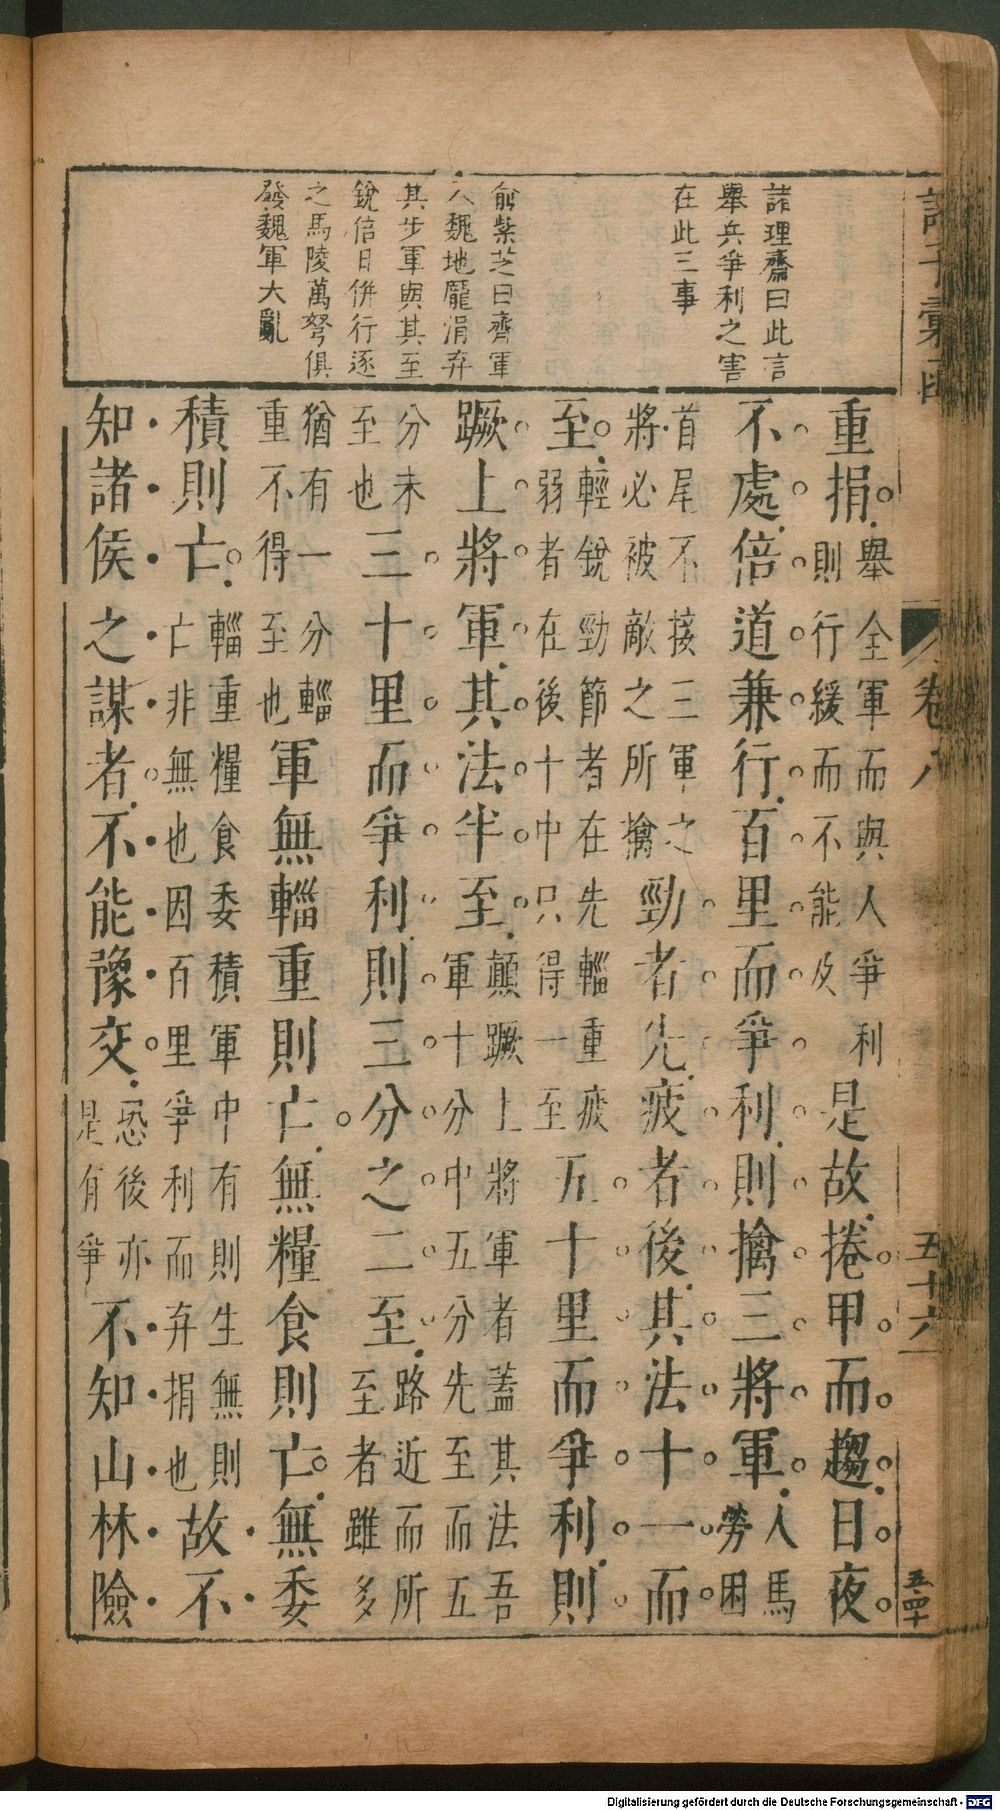 諸子彙函
卷八
五十六
諸理齋曰此言
舉兵爭利之害
在此三事
俞紫芝曰齊軍
入魏地龐涓弃
其步軍與其至
銳倍日併行逐
之馬陵萬弩俱
發魏軍大亂
重捐舉全軍而與人爭利則行緩而不能及是故捲甲而趨日夜
不處倍道兼行百里而爭利則擒三將軍人馬勞困
首尾不接三軍之將必被敵之所擒勁者先疲者後其法十一而
至輕銳勁節者在先輜重疲弱者在後十中只得一至五十里而爭利則
蹶上將軍其法半至顛蹶上將軍者蓋其法吾軍十分中五分先至而五
分未至也三十里而爭利則三分之二至路近而所至者雖多
猶有一分輜重不得至也軍無輜重則亡無糧食則亡無委
積則亡輜重糧食委積軍中有則生無則亡非無也因百里爭利而弃捐也故不
知諸侯之謀者不能豫交恐後亦是有爭不知山林險
Digitalisierung gefördert durch die Deutsche Forschungsgemeinschaft - DFG